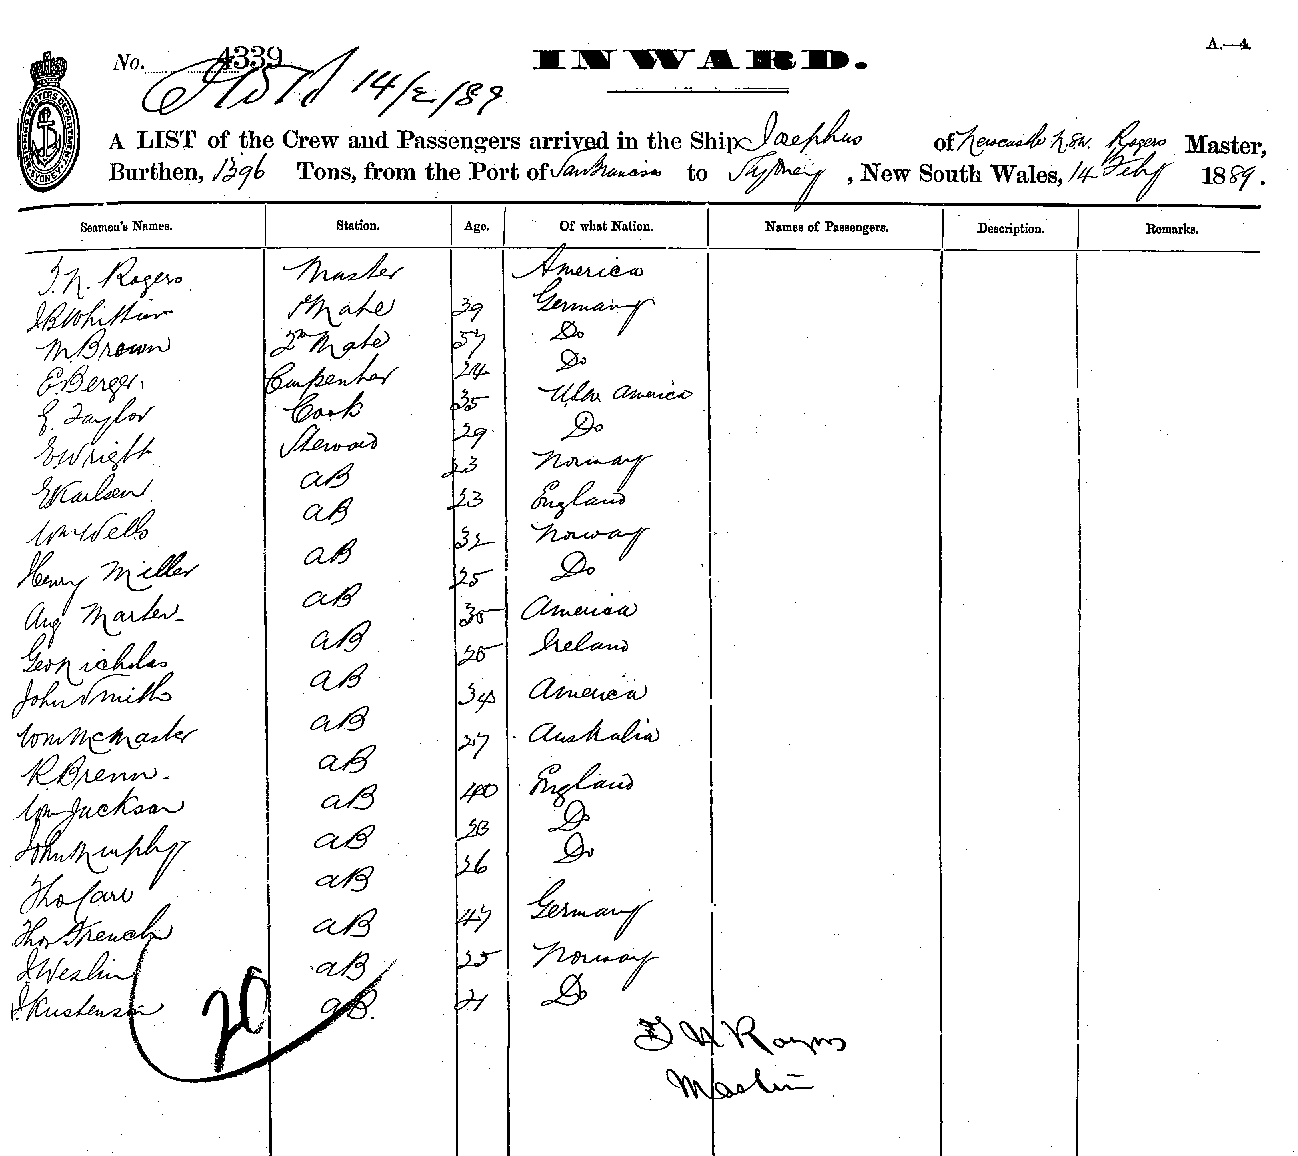 A.—4.
No. 4339
INWARD.
14/2/89
A LIST of the Crew and Passengers arrived in the Ship Josephus of Newcastle N.S.W. Rogers Master,
Burthen, 1396 Tons, from the Port of San Francisco to Sydney, New South Wales, 14 Feby 1889.
Seamen's Names. Station. Age. Of what Nation. Names of Passengers. Description. Remarks.
T. N. Rogers Master America
J B Whittier 1 Mate 39 Germany
M. Brown 2nd Mate 37 Do
E. Berger. Carpenter 24 Do
E. Taylor Cook 35 America
E Wright Steward 29 Do
E Karlsen AB 23 Norway
Wm Wells AB 23 England
Henry Miller AB 32 Norway
Aug Marter AB 25 Do
Geo Nicholas AB 35 America
John Smith AB 25 Ireland
Wm McMaster AB 34 America
R. Brenn. AB 27 Australia
Wm Jackson AB 40 England
John Murphy AB 23 Do
Tho Carr AB 26 Do
Thos French AB 47 Germany
J Weslin AB 25 Norway
J. Kustensen AB. 21 Do
20
Rogers
Master